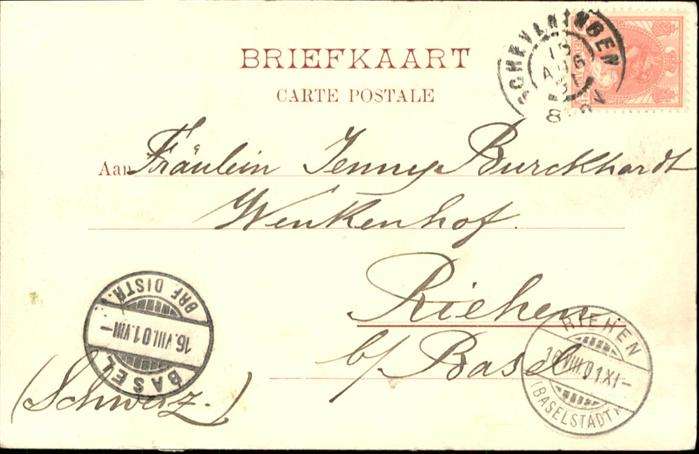 BRIEFKAART
CARTE POSTALE
SCHEVENINGEN
15
AUG
Aan Fräulein Jenny Burckhardt
Wenkenhof.
Riehen
b/Basel
(Schweiz.)
BASEL
16.VIII.01.VIII—
BRF. DISTR.
RIEHEN
16.VIII.01.XI—
(BASELSTADT)